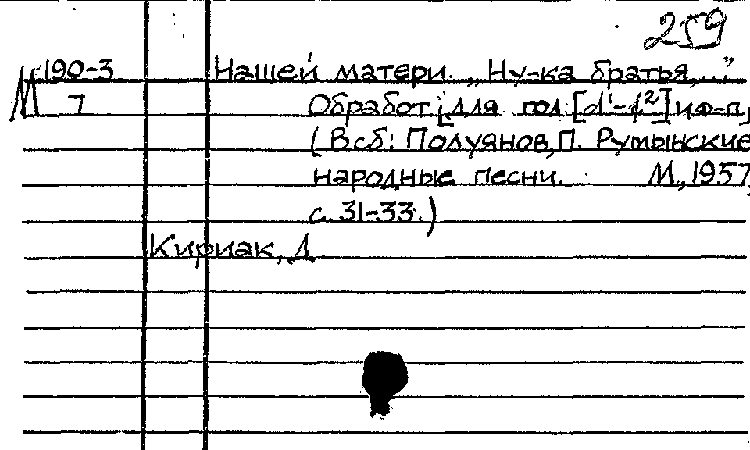 259
М 190-3 Нашей матери. „Ну-ка братья,..."
7 Обработ. [для гол. [d¹-f²] и ф-п.]
(В сб: Полуянов, П. Румынские
народные песни. М., 1957,
с. 31-33.)
Кириак, Д